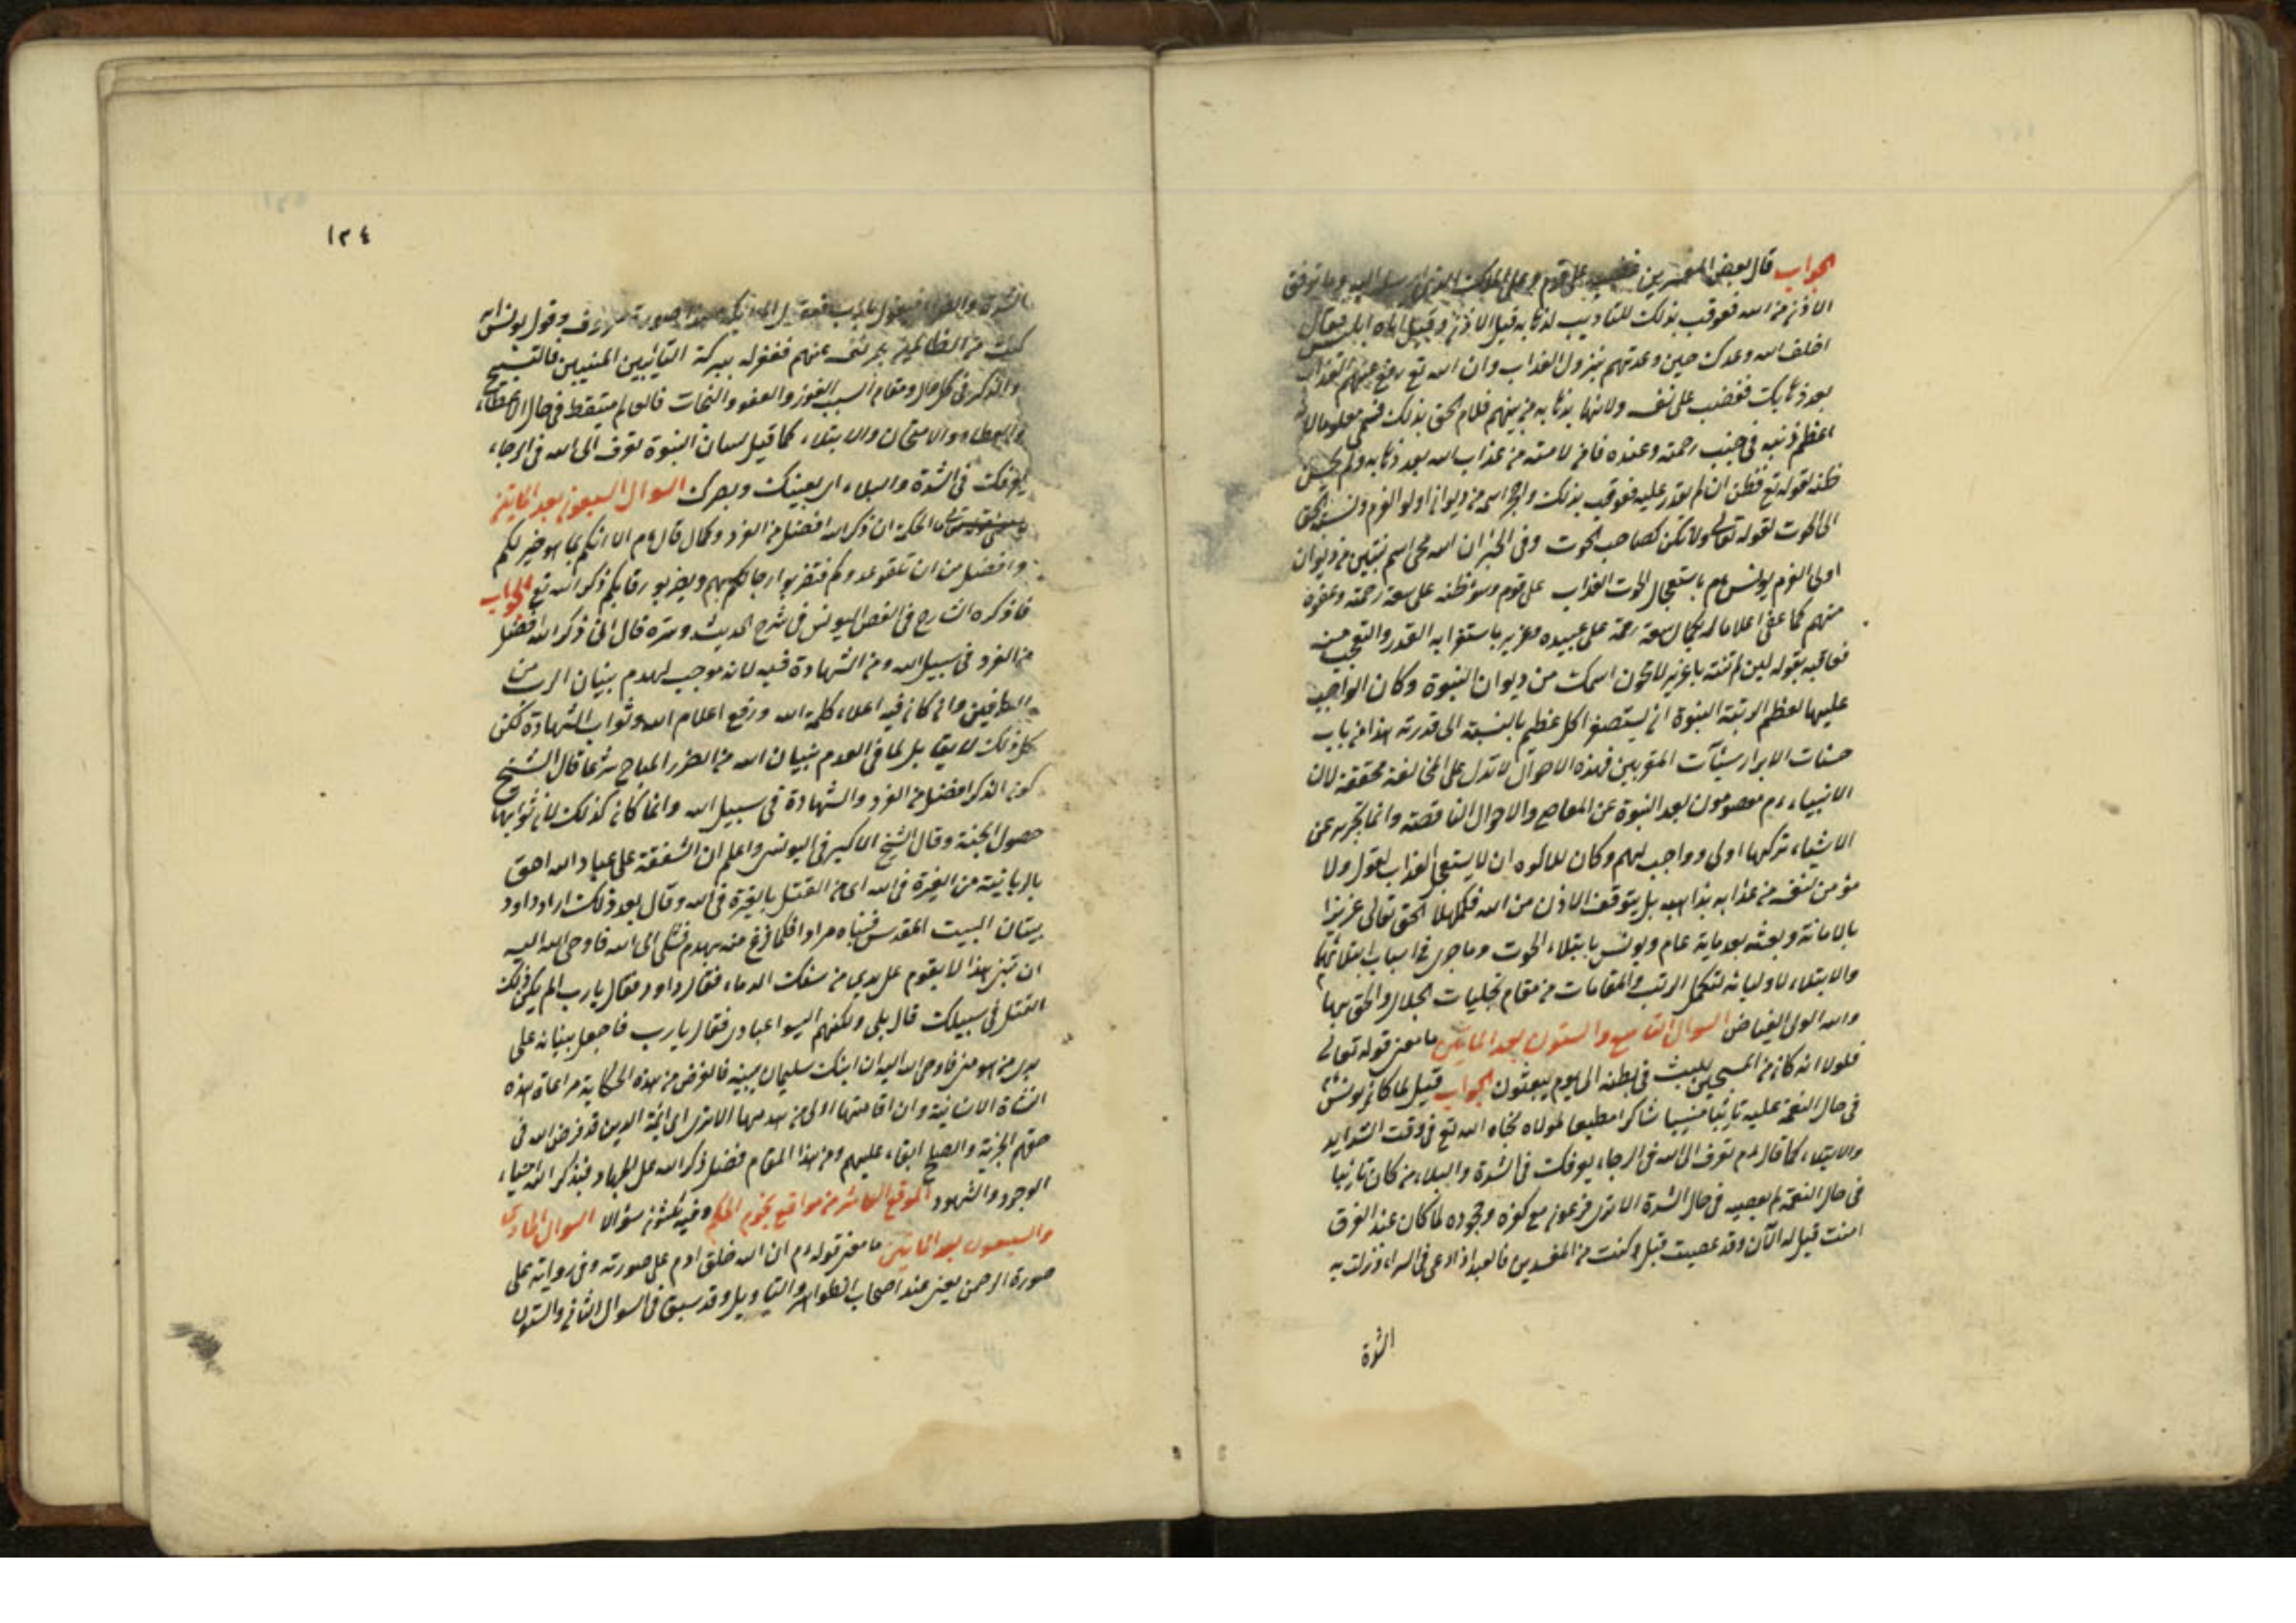 الجواب قال بعض المفسرين فغضب على قوم وعلى الملك الذي ارسل اليه وما توقف
الاذن من الله فعوقب بذلك للتاديب لذهابه قبل الاذن وقيل اتاه ابليس فقال
اخلف الله وعدك حين وعدتهم بنزول العذاب وان الله تع رفع عنهم العذاب
بعد ذهابك فغضب على نفسه ولانها بذهابه من بينهم فلام الحق بذلك
اعظم ذنبه في جنب رحمته وعنده فانه لامته من عذاب الله بعد ذهابه ولم يحسن
ظنه لقوله تع فظن ان لم نقدر عليه فعوقب بذلك واخرج اسمه من ديوان اولو العزم ونسبه الحق
الى الحوت لقوله تعالى ولا تكن كصاحب الحوت وفي الخبر ان الله محى اسم نبيين من ديوان
اولى العزم يونس ءم باستعجال الحوت العذاب على قوم وسوء ظنه على سعة رحمته وعفوه
منهم كما عفى اعلاما له بكمال سعة رحمة على عبيده وعزير باستغرابه القدر والتعجب منه
فعاقبه بقوله لئن لم تنته يا عزير لامحون اسمك من ديوان النبوة وكان الواجب
عليهما لعظم الرتبة النبوة ان يستصغرا كل عظيم بالنسبة الى قدرته هذا من باب
حسنات الابرار سيئات المقربين فهذه الاحوال لا تدل على المخالفة محققة لان
الانبياء ءم معصومون بعد النبوة عن المعاصي والاحوال الناقصة وانما تجرى عن
الاشياء تركها اولى وواجب لهم وكان للماكوه ان لا يستعجل العذاب لقول ولا
مؤمن نفسه من عذابه بذاهبه بل يتوقف الاذن من الله فكملهما الحق تعالى عزيزا
بالاماتة وبعثه بعد ماية عام ويونس بابتلاء الحوت وما جرى في اسباب ابتلائهما
والابتلاء لاوليائه لتكمل الرتب والمقامات من مقام تجليات الجلال والحق بربها
والله الولى الفياض السوال التاسع والستون بعد المايتين ما معنى قوله تعالى
فلولا انه كان من المسبحين للبث في بطنه الى يوم يبعثون الجواب قيل لما كان يونس ءم
في حال النعمة عليه تائبا منيبا شاكرا مطيعا لمولاه نجاه الله تع في وقت الشدايد
والابتلاء كما قال ءم تعرف الى الله في الرجاء يعرفك في الشدة والبلاء من كان تائبا
في حال النعمة لم يعصيه في حال الشدة الا ترى فرعون مع كفره وجحوده لما كان عند الغرق
امنت قيل له الآن وقد عصيت قبل وكنت من المفسدين فالعبد اذا دعى في السراء ونزلت به
الشدة
١٣٤
الشدة والضراء فيقول يا رب فتقول الملائكة هذا صوت معروف وقول يونس انى
كنت من الظالمين بجر ئتى عنهم فغفر له ببركة التائبين المنيبين فالتسبيح
والذكر في كل حال ومقام اسبب الفوز والعفو والنجات فالعالم متيقظ في حال الاعطاء
والعطاء والامتحان والابتلاء كما قيل لسان النبوة تعرف الى الله في الرجاء
يعرفك في الشدة والبلاء اى يعينك وينصرك السوال السبعون بعد المايتين
ما الحكمة ان ذكر الله افضل من الغزو وكمال قال ءم الا انبئكم بما هو خير لكم
وافضل من ان تلقو عدوكم فتضربوا رقابهم ويضربو رقابكم ذكر الله تع الجواب
فاذكره الشارح في الفص اليونس في شرح الحديث وسره قال انى ذكر الله افضل
من الغزو في سبيل الله ومن الشهادة فيه لانه موجب لهدم بنيان الرب من
الطرفين وان كان فيه اعلاء كلمة الله ورفع اعلام الله وثواب الشهادة لكن
كل ذلك لا يقابل لما في الهدم بنيان الله من الضرر المباح شرعا قال الشيخ
كون الذكر افضل من الغزو والشهادة في سبيل الله وانما كان كذلك لان ثوابهما
حصول الجنة وقال الشيخ الاكبر في اليونس واعلم ان الشفقة على عباد الله احق
بالرعاية من الغيرة في الله اى من القتل بالغيرة في الله وقال بعد ذلك اراد داود
بنيان البيت المقدس فبناه مرارا فكلما فرغ منه يهدم فشكى الى الله فاوحى الله اليه
ان بيتى هذا لا يقوم على يدى من سفك الدماء فقال داود فقال يا رب الم يكن ذلك
القتل في سبيلك قال بلى ولكنهم اليسوا عبادى فقال يا رب فاجعل بنيانه على
يدى من هو منى فاوحى الله اليه ان ابنك سليمان يبنيه فالغرض من هذه الحكاية مراعاة هذه
النشاة الانسانية وان اقامتها اولى من هدمها الا ترى الى ائمة الدين قد فرض الله في
حقهم الجزية والصلح ابقاء عليهم ومن هذا المقام فضل ذكر الله على الجهاد فبذكر الله احياء
الوجود والشهود الموقع العاشر من مواقع نجوم الحكم وفيه ثلثون سؤالا السوال الحادى
والسبعون بعد المايتين ما معنى قوله ءم ان الله خلق ادم على صورته وفي رواية على
صورة الرحمن يعنى عند اصحاب الظواهر والتاويل وقد سبق في السوال الثاني والستون